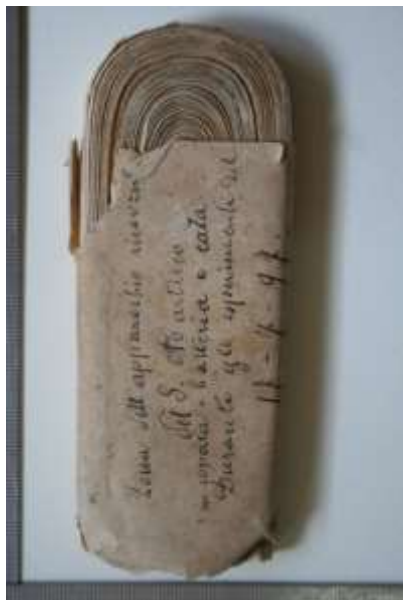 Zona dell'apparecchio ricevent
Del S. Martino
impora batteria e cata
Durante gli esperimenti del
17-7-97.